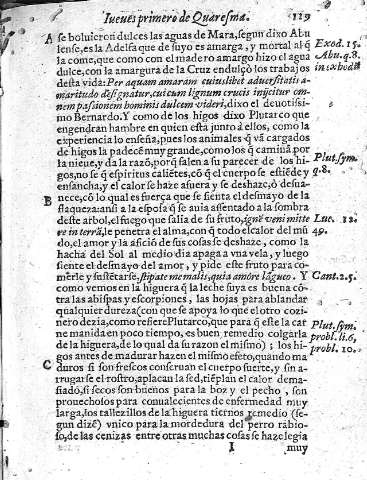 Iueues primero de Quaresma. 129
A se boluieron dulces las aguas de Mara, segun dixo Abu
lense, es la Adelfa que de suyo es amarga, y mortal al q̃
la come, que como con el madero amargo hizo el agua
dulce, con la amargura de la Cruz endulçò los trabajos
desta vida: Per aquam amaram cuiuslibet aduersitatis a-
maritudo designatur, cui tum lignum crucis inijcitur com
nem passionem hominis dulcem videri, dixo el deuotissi
mo Bernardo. Y como de los higos dixo Plutarco que
engendran hambre en quien està junto à ellos, como la
experiencia lo enseña, pues los animales q̃ và cargados
de higos la padecẽ muy grande, como los q̃ caminã por
la nieue, y da la razõ, porq̃ salen a su parecer de los hi-
gos, no se q̃ espiritus caliẽtes, cõ q̃ el cuerpo se estiẽde y
ensancha, y el calor se haze afuera y se deshaze, ò desua-
nece, cõ lo qual es fuerça que se sienta el desmayo de la
B flaqueza: ansi a la esposa q̃ se auia assentado a la sombra
deste arbol, el fuego que salia de su fruto, ignẽ veni mitte
re in terrã, le penetra el alma, con q̃ todo el calor del mũ
do, el amor y la aficiõ de sus cosas se deshaze, como la
hacha del Sol al medio dia apaga a vna vela, y luego
siente el desmayo del amor, y pide este fruto para co-
merle y sustẽtarse, stipate me malis, quia amore lãgueo. Y
como vemos en la higuera q̃ la leche suya es buena cõ-
tra las abispas y escorpiones, las hojas para ablandar
qualquier dureza (con que se apoya lo que el otro cozi
nero dezia, como refiere Plutarco, que para q̃ este la car
ne manida en poco tiempo, es buen remedio colgarla
de la higuera, de lo qual da su razon el mismo); los hi-
gos antes de madurar hazen el mismo efeto, quando ma
C duros si son frescos conseruan el cuerpo fuerte, y sin a-
rrugarse el rostro, aplacan la sed, tiẽplan el calor dema-
siado, si secos son buenos para la boz y el pecho, son
prouechosos para conualecientes de enfermedad muy
larga, los tallezillos de la higuera tiernos remedio (se-
gun dizẽ) vnico para la mordedura del perro rabio-
so, de las cenizas entre otras muchas cosas se haze legia
I muy
Exod. 15.
Abu. q. 8.
in exod.
Plut. sym.
q. 8.
Luc. 12.
49.
Cant. 2. 5.
Plut. sym.
probl. li. 6,
probl. 10.